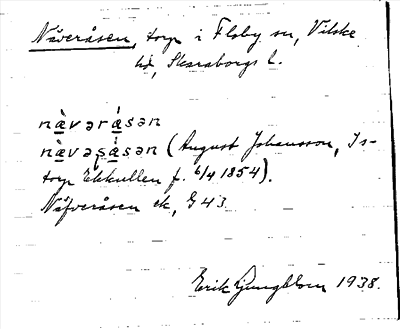 Näveråsen, torp i Floby sn, Vilske
hd, Skaraborgs l.
nä̀vərásən
nä̀vəşásən (August Johansson, Is-
torp Ekkullen f. 6/4 1854).
Näfveråsen ek, G43.
Erik Ljungblom 1938.